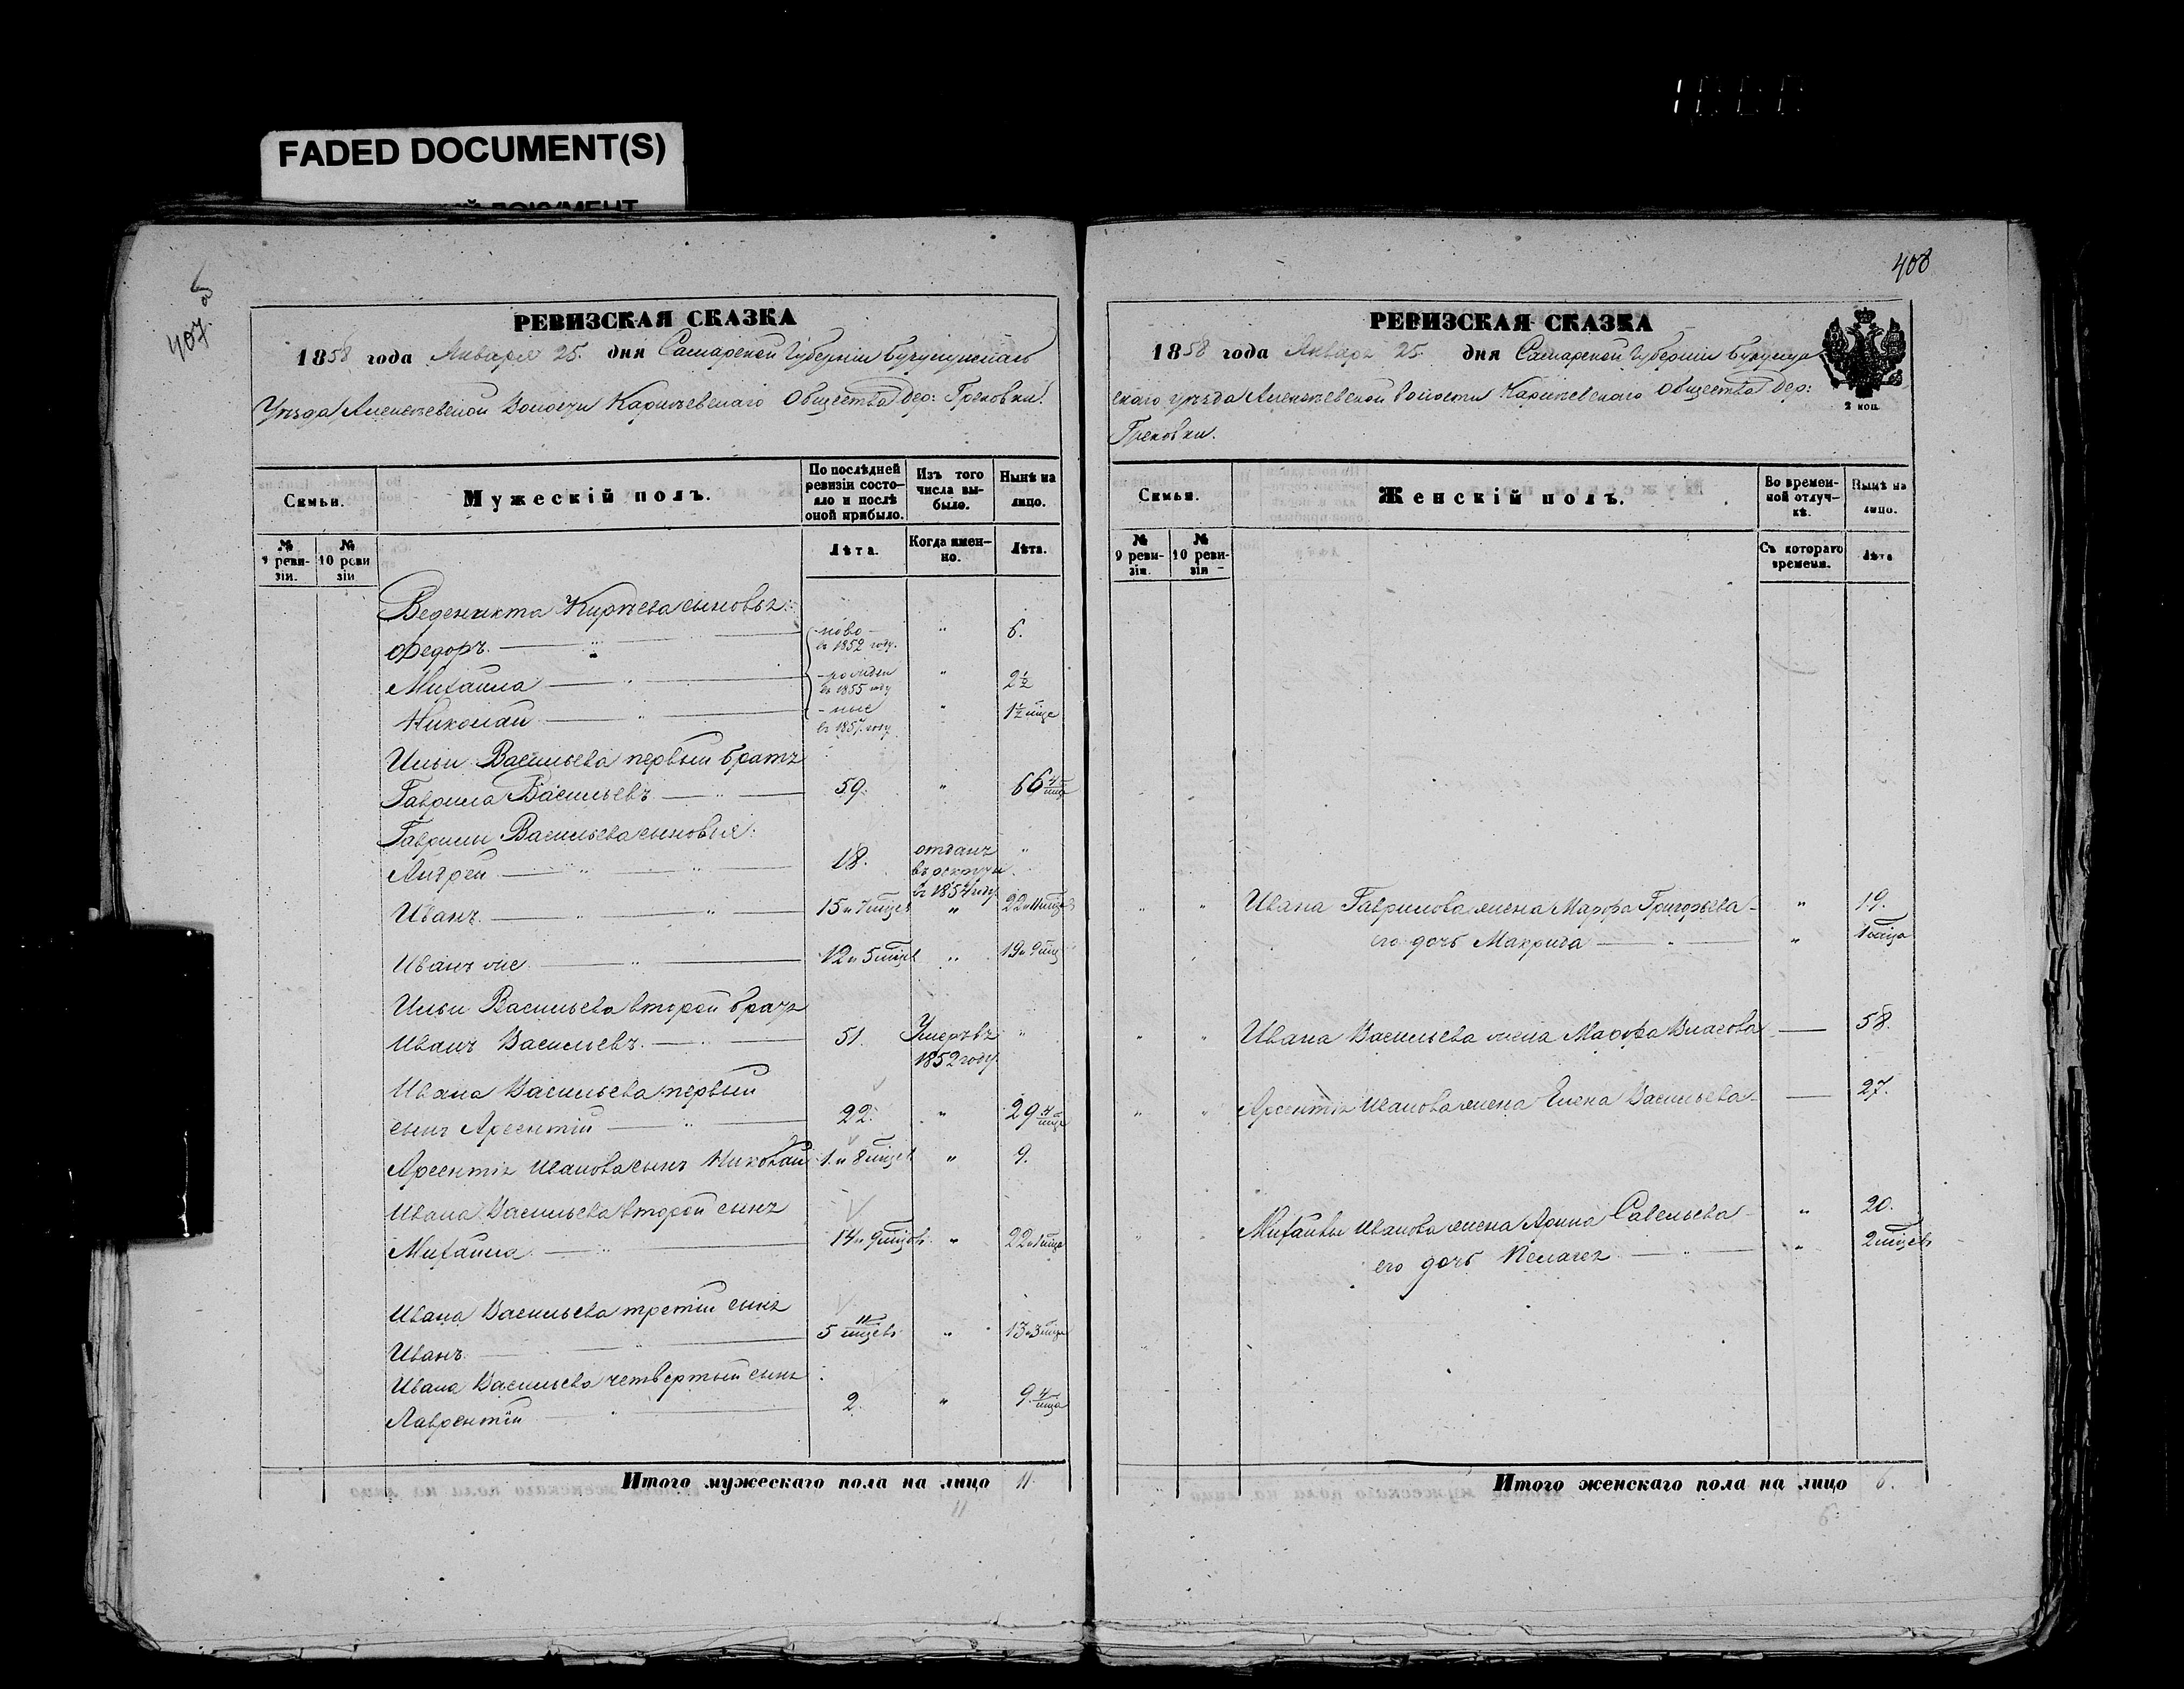 1000
FADED DOCUMENT(S)
407 об
РЕВИЗСКАЯ СКАЗКА
1858 года Января 25. дня Самарской Губерніи Бугурусланс
Уѣзда Алексѣевской Волости Общества дер: Грековки.
Семьи.
Мужескій полъ.
По послѣдней ревизіи состояло и послѣ оной прибыло.
Изъ того числа выбыло.
Нынѣ на лицо.
№ 9 ревизіи.
№ 10 ревизіи
Лѣта.
Когда именно.
Лѣта.
Веденикта сыновья:
Федоръ. — " — ново- въ 1852 году. " 6.
Михаила — " — рожден въ 1855 году " 2½
Николай — " — ные въ 1857 году " 1½ мѣце
Ильи Васильева первый братъ
Гаврила Васильевъ — " — 59. " 66 4/мѣце
Гаврилы Васильева сыновья:
Андрей — " — " — 18. отданъ въ рекруты въ 1854 году "
Иванъ. — " — " — 15 и 7 мѣцев " 22 и 11 мѣцев
Иванъ же — " — 12 и 5 мѣцев " 19 и 9 мѣц
Ильи Васильева второй братъ
Иванъ Васильевъ. — " — 51. Умеръ въ 1852 году. "
Ивана Васильева первый
сынъ Арсентій — " — 22. " 29 4/мѣце
Арсентія Иванова сынъ Николай 1. и 8 мѣцев " 9.
Ивана Васильева второй сынъ
Михаила. — " — 14 и 9 мѣцовъ. " 22 и 1 мѣце
Ивана Васильева третій сынъ
Иванъ. — " — 5 11/мѣцевъ " 13 и 3 мѣце
Ивана Васильева четвертый сынъ
Лаврентій — " — 2. " 9 4/мѣца
Итого мужескаго пола на лицо 11.
11
408
РЕВИЗСКАЯ СКАЗКА
1858 года Января 25. дня Самарской Губерніи Бугурусла
скаго уѣзда Алексѣевской волости Общества дер:
Грековки.
2 коп
Семья.
Женскій полъ.
Во временной отлучкѣ.
Нынѣ на лицо.
№ 9 ревизіи.
№ 10 ревизіи
Съ котораго времени.
Лѣта
" " Ивана Гаврилова жена Марфа Григорьева — " 19.
его дочь Макрида — " — " 1 мѣца
" " Ивана Васильева жена Марфа Власова — 58.
" " Арсентія Иванова жена Елена Васильева — 27.
" " Михаилы Иванова жена Арина Савельева — " 20.
его дочь Пелагея — " — " 2 мѣцевъ
Итого женскаго пола на лицо 6.
6